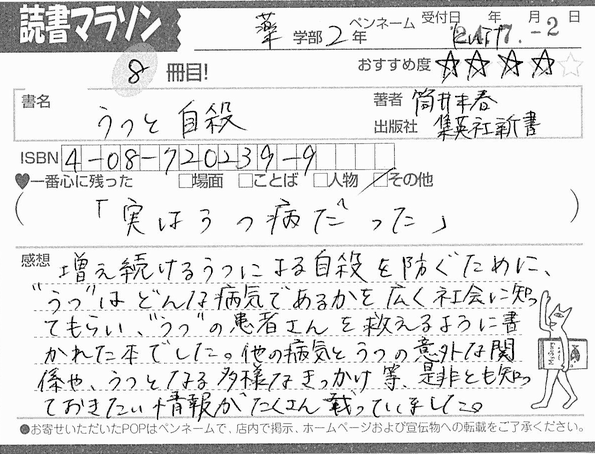 読書マラソン
薬 学部 2 年 ペンネーム 受付日 年 月 日
7.-2
8 冊目! おすすめ度 ☆☆☆☆☆
書名 うつと自殺
著者 筒井末春
出版社 集英社新書
ISBN 4-08-720239-9
♥一番心に残った □場面 □ことば □人物 □その他
(「実はうつ病だった」)
感想 増え続けるうつによる自殺を防ぐために、
"うつ"はどんな病気であるかを広く社会に知っ
てもらい、"うつ"の患者さんを救えるように書
かれた本でした。他の病気とうつの意外な関
係や、うつとなる多様なきっかけ等、是非とも知っ
ておきたい情報がたくさん載っていました。
●お寄せいただいたPOPはペンネームで、店内で掲示、ホームページおよび宣伝物への転載をご了承ください。